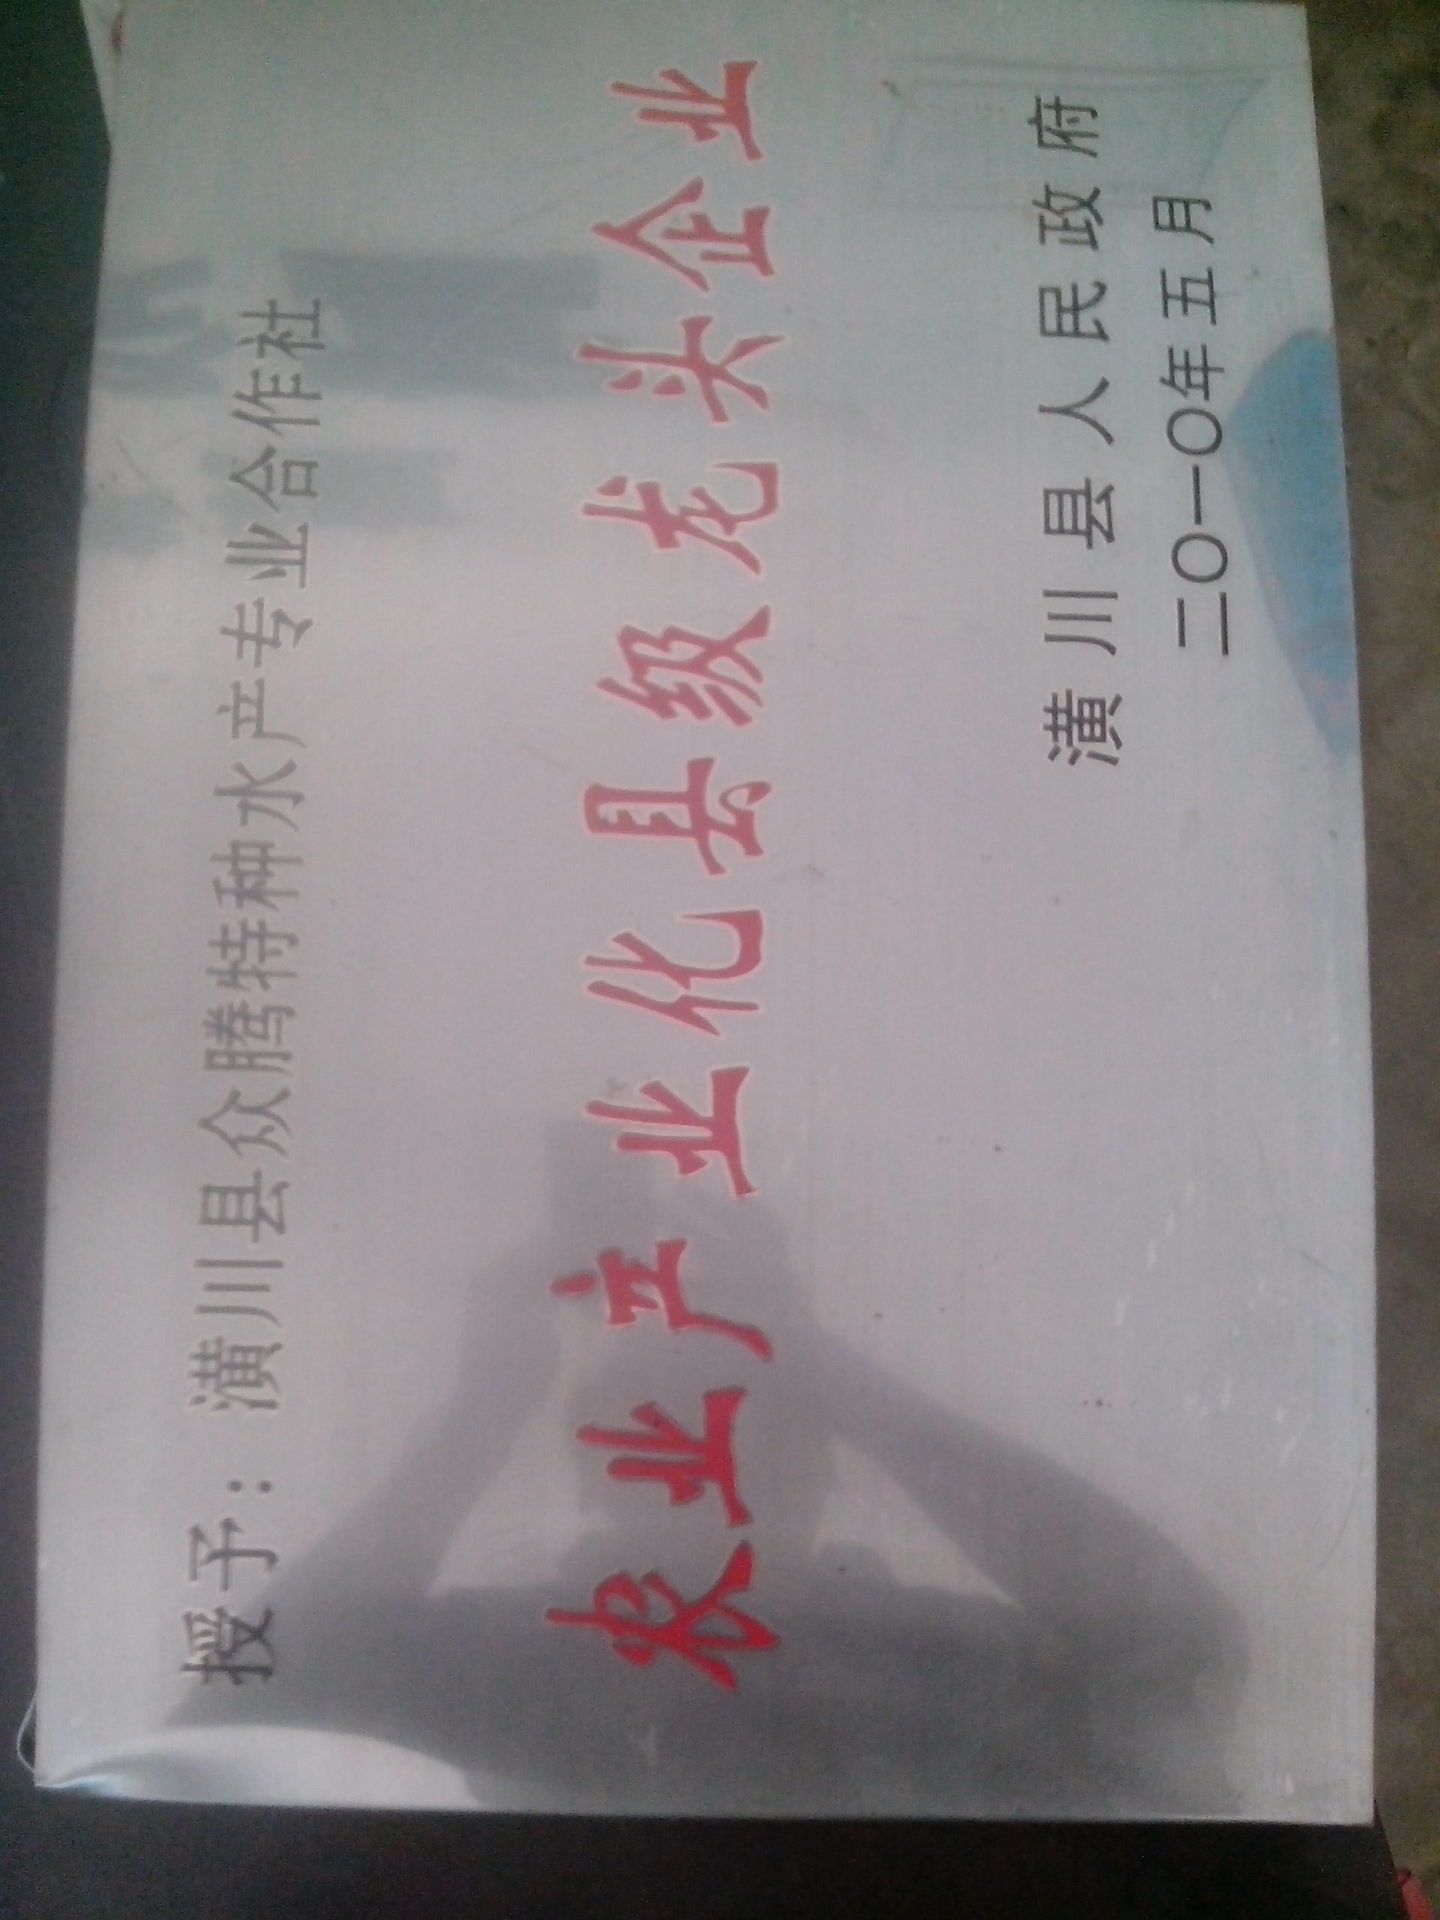 授予：潢川县众腾特种水产专业合作社
农业产业化县级龙头企业
潢川县人民政府
二〇一〇年五月